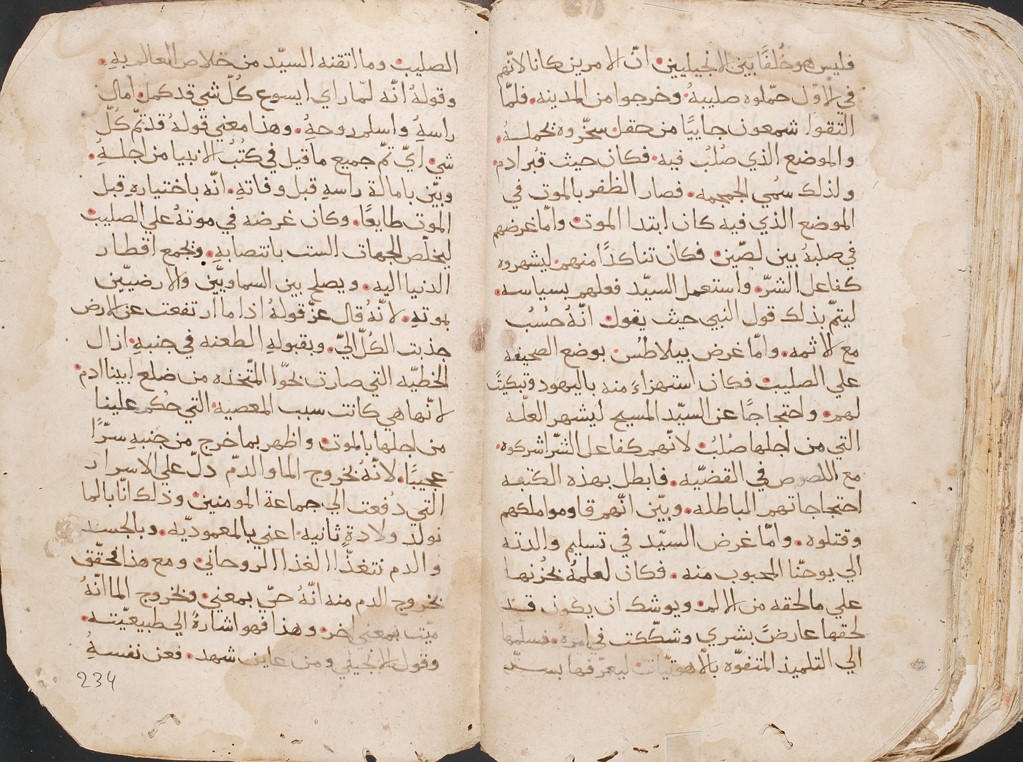 فليس هو خُلفًا بين الانجيليين انّ الامرين كانا لانّهم
في لاوّل حمّلوه صليبهُ وخرجوا من المدينه فلمّا
التقوا شمعون جاييًا من حقل سخّروه بحملهُ
والموضع الذي صُلبُ فيه فكان حيث قبُر ادم
ولذلك سمُي الجمجمه فصار الظفر بالموت في
الموضع الذي فيه كان ابتدا الموت وامّا غرضهم
في صلبهُ بين لصّين فكان تناكدًا منهم ليشهروه
كفاعل الشرّ واستعمل السيّد فعلهم بسياسه
ليتمّ بذلك قول النبي حيث يقول انّهُ حُسُب
مع الاثمه وامّا غرض بيلاطس بوضع الصحيفه
على الصليب فكان استهزاءً منه باليهود وتبكيتًا
لهم واحتجاجًا عن السيّد المسيح ليشهر العلّه
التي من اجلها صُلب لانهم كفاعل الشرّ اشركوه
مع اللصوص في القضيّه فابطل بهذه الكتبه
احتجاجاتهم الباطله وبيّن انّهم قاوموا ملكهم
وقتلوه وامّا غرض السيّد في تسليم والدته
الي يوحنّا المحبوب منه فكان لعلمهُ بحُزنها
علي ما لحقه من الالم ويوشك ان يكون قد
لحقها عارضٌ بشري وتشكّكت في امرهُ فسلمها
الي التلميذ المتفوّه بالاهوتيّات ليعرّفها بسرّ
الصليب وما اتقنه السيّد من خلاص العالم بهِ
وقولهُ انّه لمّا راي ايسوع كُلّ شي قد كمل امال
راسهُ واسلم روحهِ وهذا معني قولهُ قد تمّ كلّ
شي ايّ تمّ جميع ما قيل في كتُبُ الانبيا من اجلهُ
وبيّن بامالة راسهِ قبل وفاتهِ انّه باختياره قبل
الموت طايعًا وكان غرضه في موتهُ علي الصليب
ليخلّص الجهات الست بانتصابهِ ويجمع اقطار
الدنيا اليهِ ويصلح بين السماويّين والارضييّن
بموتهِ لانّهُ قال عزّ قولهُ اذا ما ارتفعت عن الارض
جذبت الكلّ اليّ وبقبولهِ الطعنه في جنبهِ ازال
الخطيّه التي صارت بحوّا المتّخذه من ضلع ابينا ادم
لانّها هي كانت سبب المعصيه التي حُكم علينا
من اجلها بالموت واظهر بما خرج من جنبهِ سرًّا
عجيبًا لانّهُ بخروج الما والدّم دلّ علي الاسرار
التي دُفعت الي جماعة المومنين وذلك انّا بالما
نولد ولادة ثانيه اعني بالمعموديّه وبالجسد
والدم نتغذّا الغذا الروحاني ومع هذا فحقّق
بخروج الدم منه انّهُ حيّ بمعني وبخروج الما انّهُ
ميّت بمعني اخر وهذا فهو اشارةُ الي طبيعيّته
وقول الانجيلي ومن عاين شهد فعن نفسهُ
234